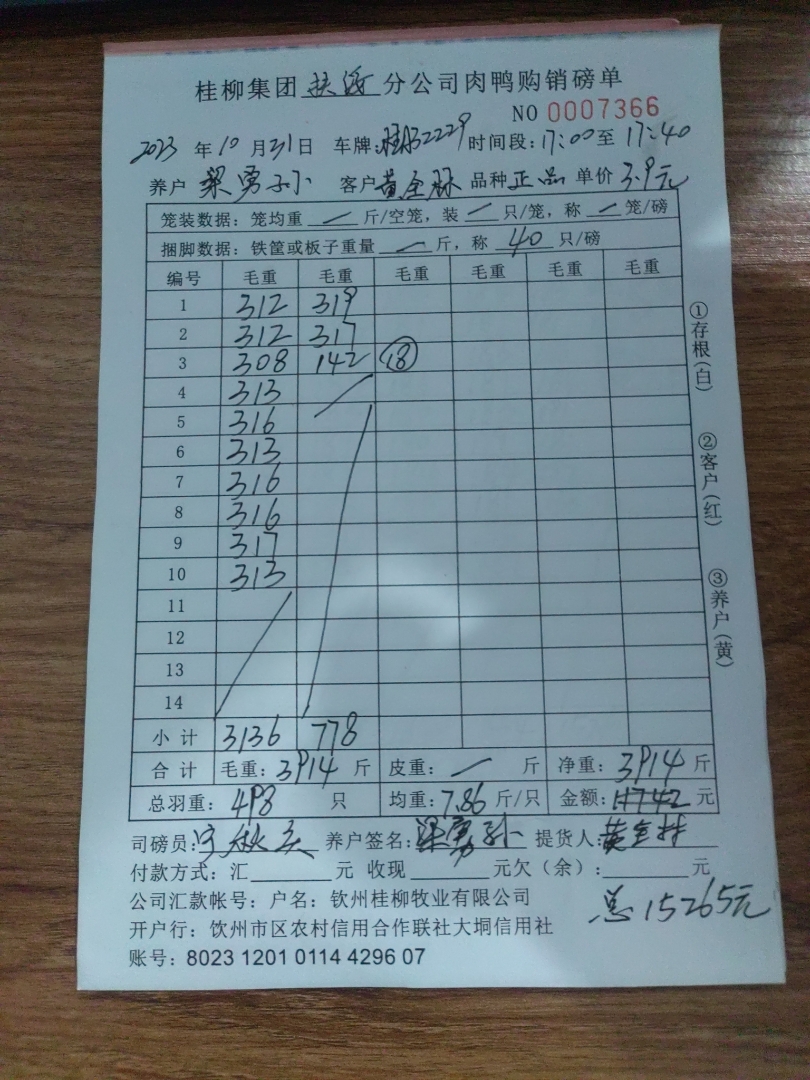 桂柳集团 扶绥 分公司肉鸭购销磅单
NO 0007366
2023 年 10 月 31 日 车牌: 2229 时间段: 17:00 至 17:40
养户 梁勇 客户 黄金 品种 正品 单价 3.9元
笼装数据: 笼均重 / 斤/空笼, 装 / 只/笼, 称 / 笼/磅
捆脚数据: 铁筐或板子重量 / 斤, 称 40 只/磅
编号 毛重 毛重 毛重 毛重 毛重 毛重
1 312 319
2 312 317
3 308 142 (18)
4 313
5 316
6 313
7 316
8 316
9 317
10 313
11
12
13
14
小计 3136 778
合计 毛重: 3914 斤 皮重: / 斤 净重: 3914 斤
总羽重: 498 只 均重: 7.86 斤/只 金额: 元
司磅员: 养户签名: 梁勇 提货人: 黄金
付款方式: 汇 元 收现 元欠(余): 元
公司汇款帐号: 户名: 钦州桂柳牧业有限公司
总15265元
开户行: 饮州市区农村信用合作联社大垌信用社
账号: 8023 1201 0114 4296 07
①存根(白)
②客户(红)
③养户(黄)